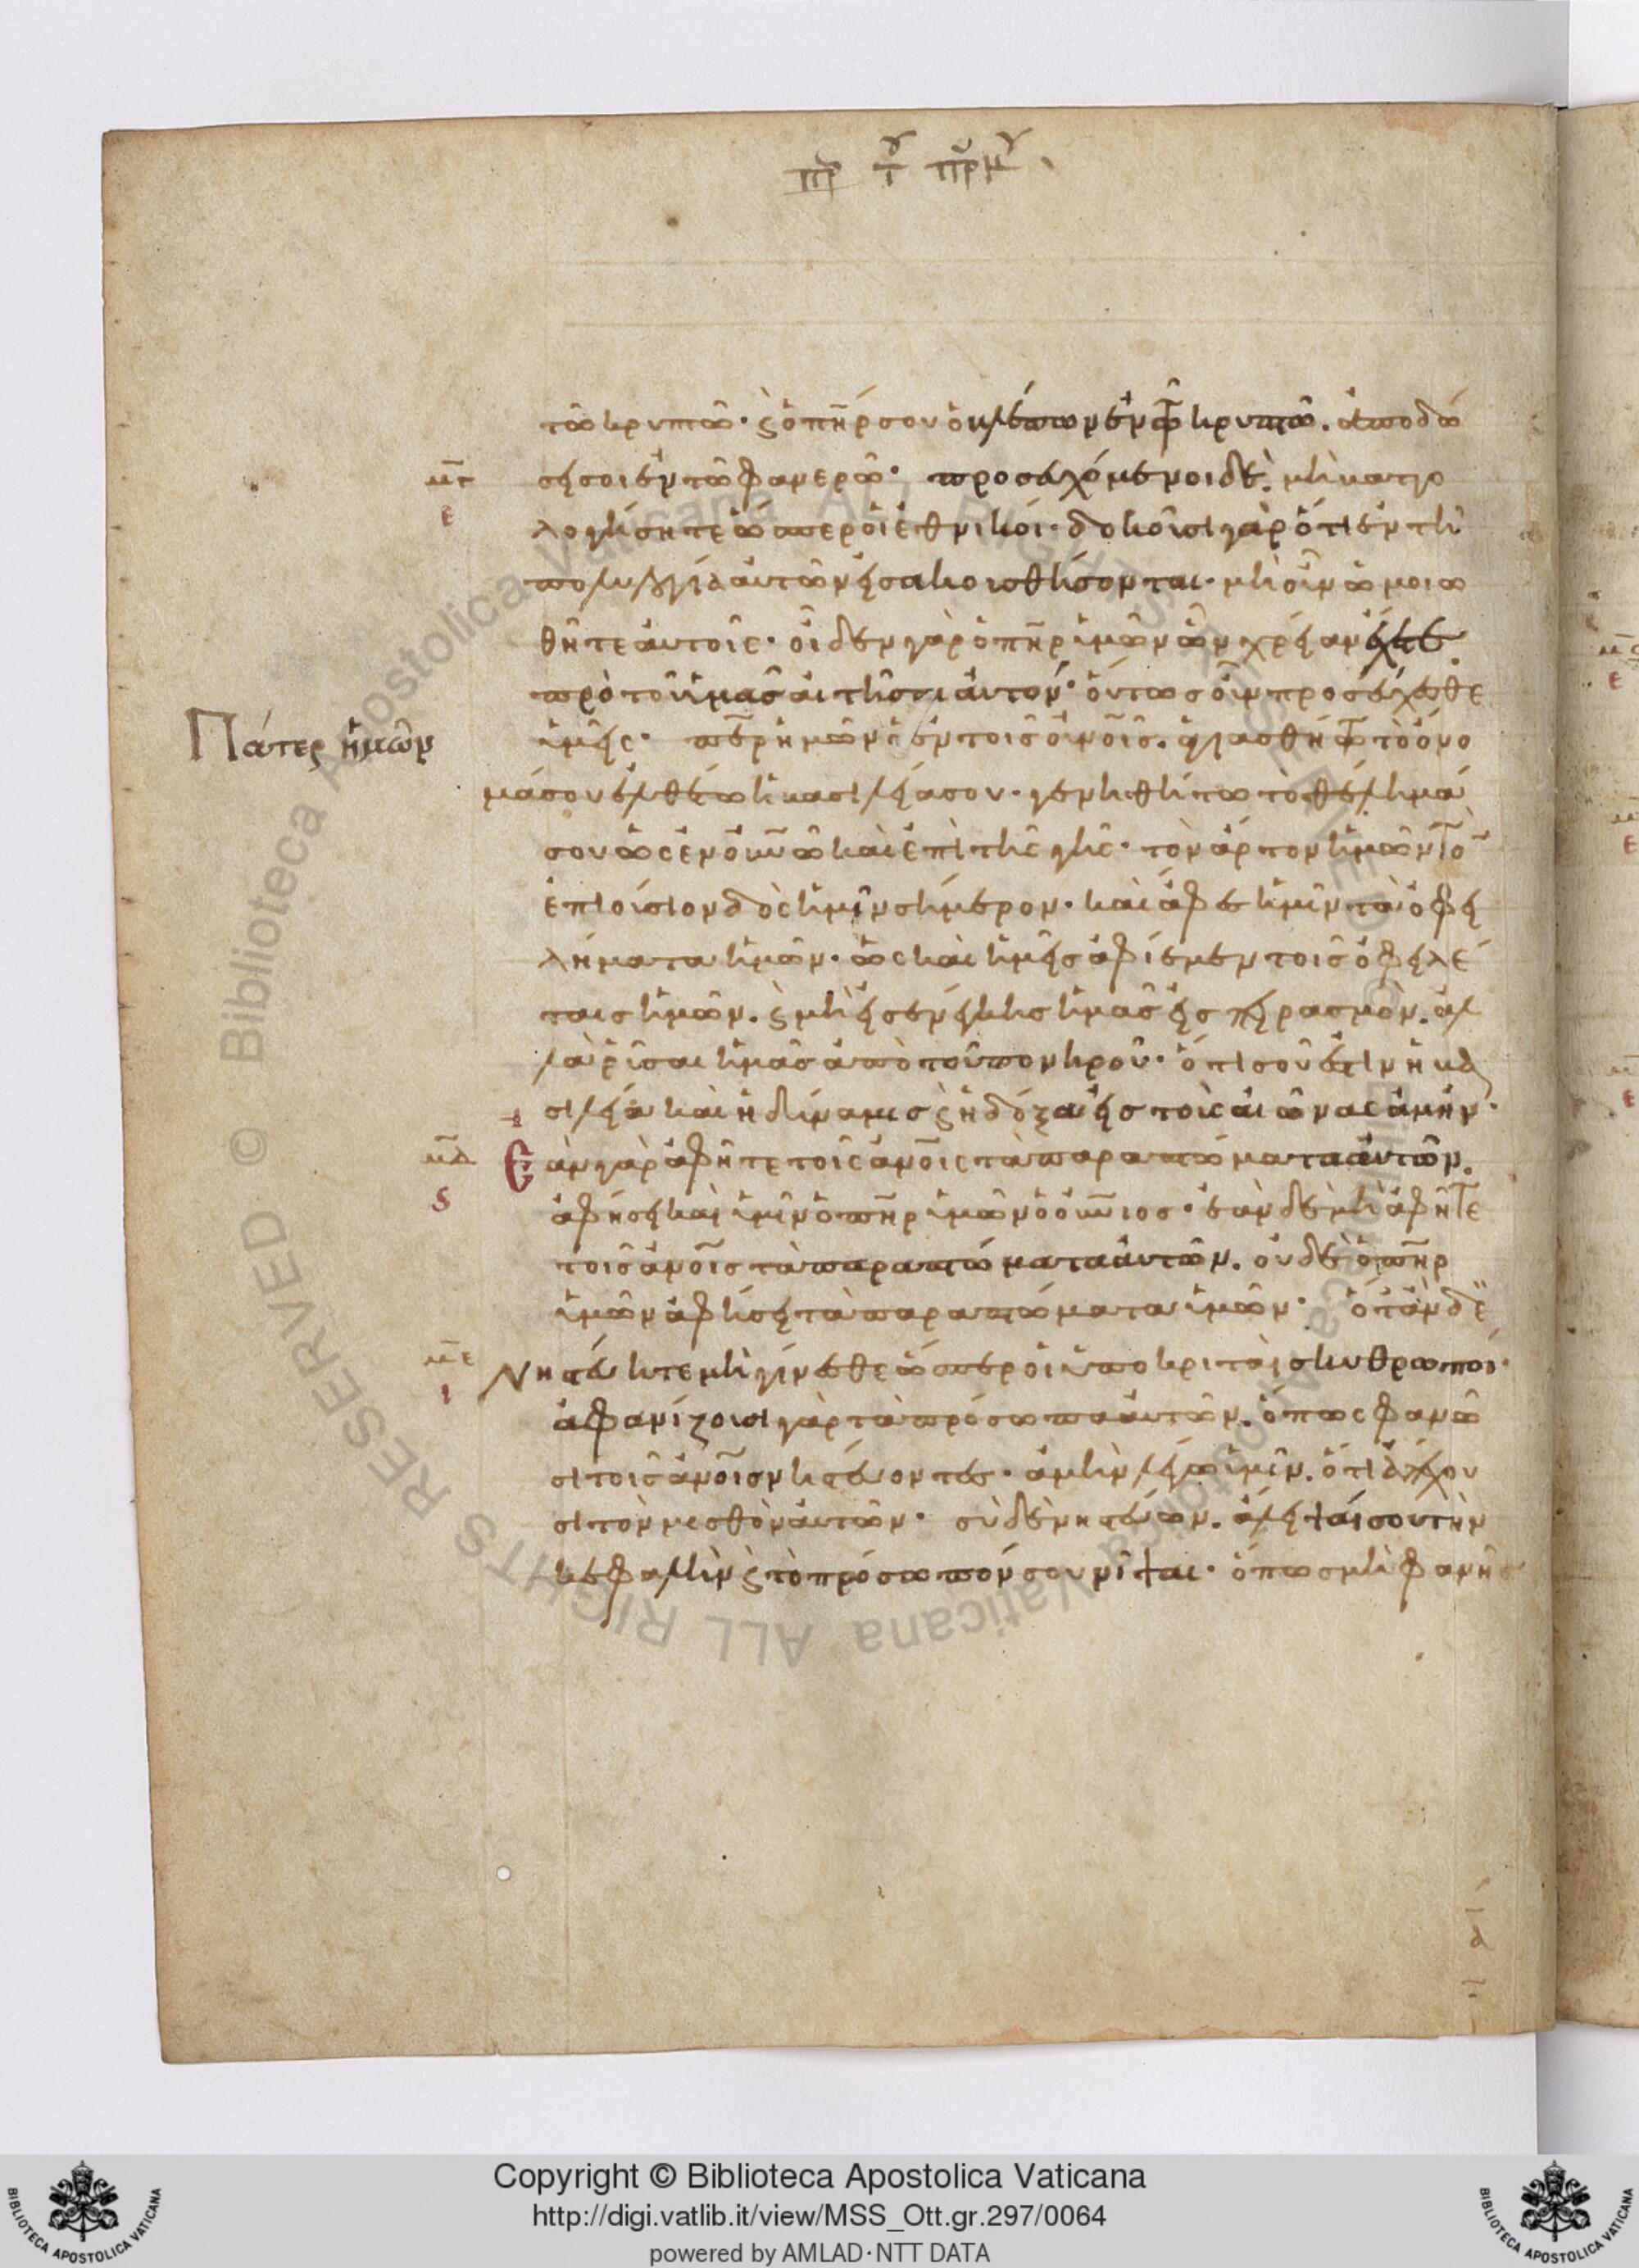 τῶ κρυπτῶ· ϛ ὁ πη̅ρ σου ὁ βλέπων ἐν τῶ κρυπτῶ. ἀποδώ
μγ σει σοι ἐν τῶ φανερῶ· προσευχόμενοι δὲ. μὴ βαττο
ε
λογήσητε ὥσπερ οἱ ἐθνικοί· δοκοῦσι γὰρ ὅτι ἐν τῆ
πολυλογία αὐτῶν εἰσακουσθήσονται· μὴ οὖν ὁμοιω
θῆτε αὐτοῖς· οἶδεν γὰρ ὁ πη̅ρ ὑμῶν ὧν χρείαν ἔχετε
πρὸ τοῦ ὑμᾶς αἰτῆσαι αὐτόν· οὕτως οὖν προσεύχεσθε
Πάτερ ἡμῶν
ὑμεῖς· πε̅ρ ἡμῶν ὁ ἐν τοῖς οὐνο̅ις. ἁγιασθήτω τὸ ὄνο
μά σου ἐλθέτω ἡ βασιλεία σου· γενηθήτω τὸ θέλημά
σου ὡς ἐν οὐνω̅ καὶ ἐπὶ τῆς γῆς· τὸν ἄρτον ἡμῶν τὸ
ἐπιούσιον δὸς ἡμῖν σήμερον· καὶ ἄφες ἡμῖν τὰ ὀφει
λήματα ἡμῶν· ὡς καὶ ἡμεῖς ἀφίεμεν τοῖς ὀφειλέ
ταις ἡμῶν. ϛ μὴ εἰσενέγκης ἡμᾶς εἰς πειρασμὸν. ἀλ
λὰ ῥῦσαι ἡμᾶς ἀπὸ τοῦ πονηροῦ· ὅτι σοῦ ἐστιν ἡ βα
σιλεία καὶ ἡ δύναμις ϛ ἡ δόξα εἰς τοὺς αἰῶνας ἀμήν·
μδ Ἐὰν γὰρ ἀφῆτε τοῖς ἀνο̅ις τὰ παραπτώματα αὐτῶν.
ϛ
ἀφήσει καὶ ὑμῖν ὁ πη̅ρ ὑμῶν ὁ οὐνιος· ἐὰν δὲ μὴ ἀφῆτε
τοῖς ἀνο̅ις τὰ παραπτώματα αὐτῶν. οὐδὲ ὁ πη̅ρ
ὑμῶν ἀφήσει τὰ παραπτώματα ὑμῶν· ὅταν δὲ
με νηστεύητε μὴ γίνεσθε ὥσπερ οἱ ὑποκριταὶ σκυθρωποί·
ι
ἀφανίζουσι γὰρ τὰ πρόσωπα αὐτῶν. ὅπως φανῶ
σι τοῖς ἀνο̅ις νηστεύοντες· ἀμὴν λέγω ὑμῖν. ὅτι ἀπέχου
σι τὸν μισθὸν αὐτῶν· σὺ δὲ νηστεύων. ἄλειψαί σου τὴν
κεφαλὴν ϛ τὸ πρόσωπόν σου νίψαι· ὅπως μὴ φανῆς
Copyright © Biblioteca Apostolica Vaticana
http://digi.vatlib.it/view/MSS_Ott.gr.297/0064
powered by AMLAD·NTT DATA